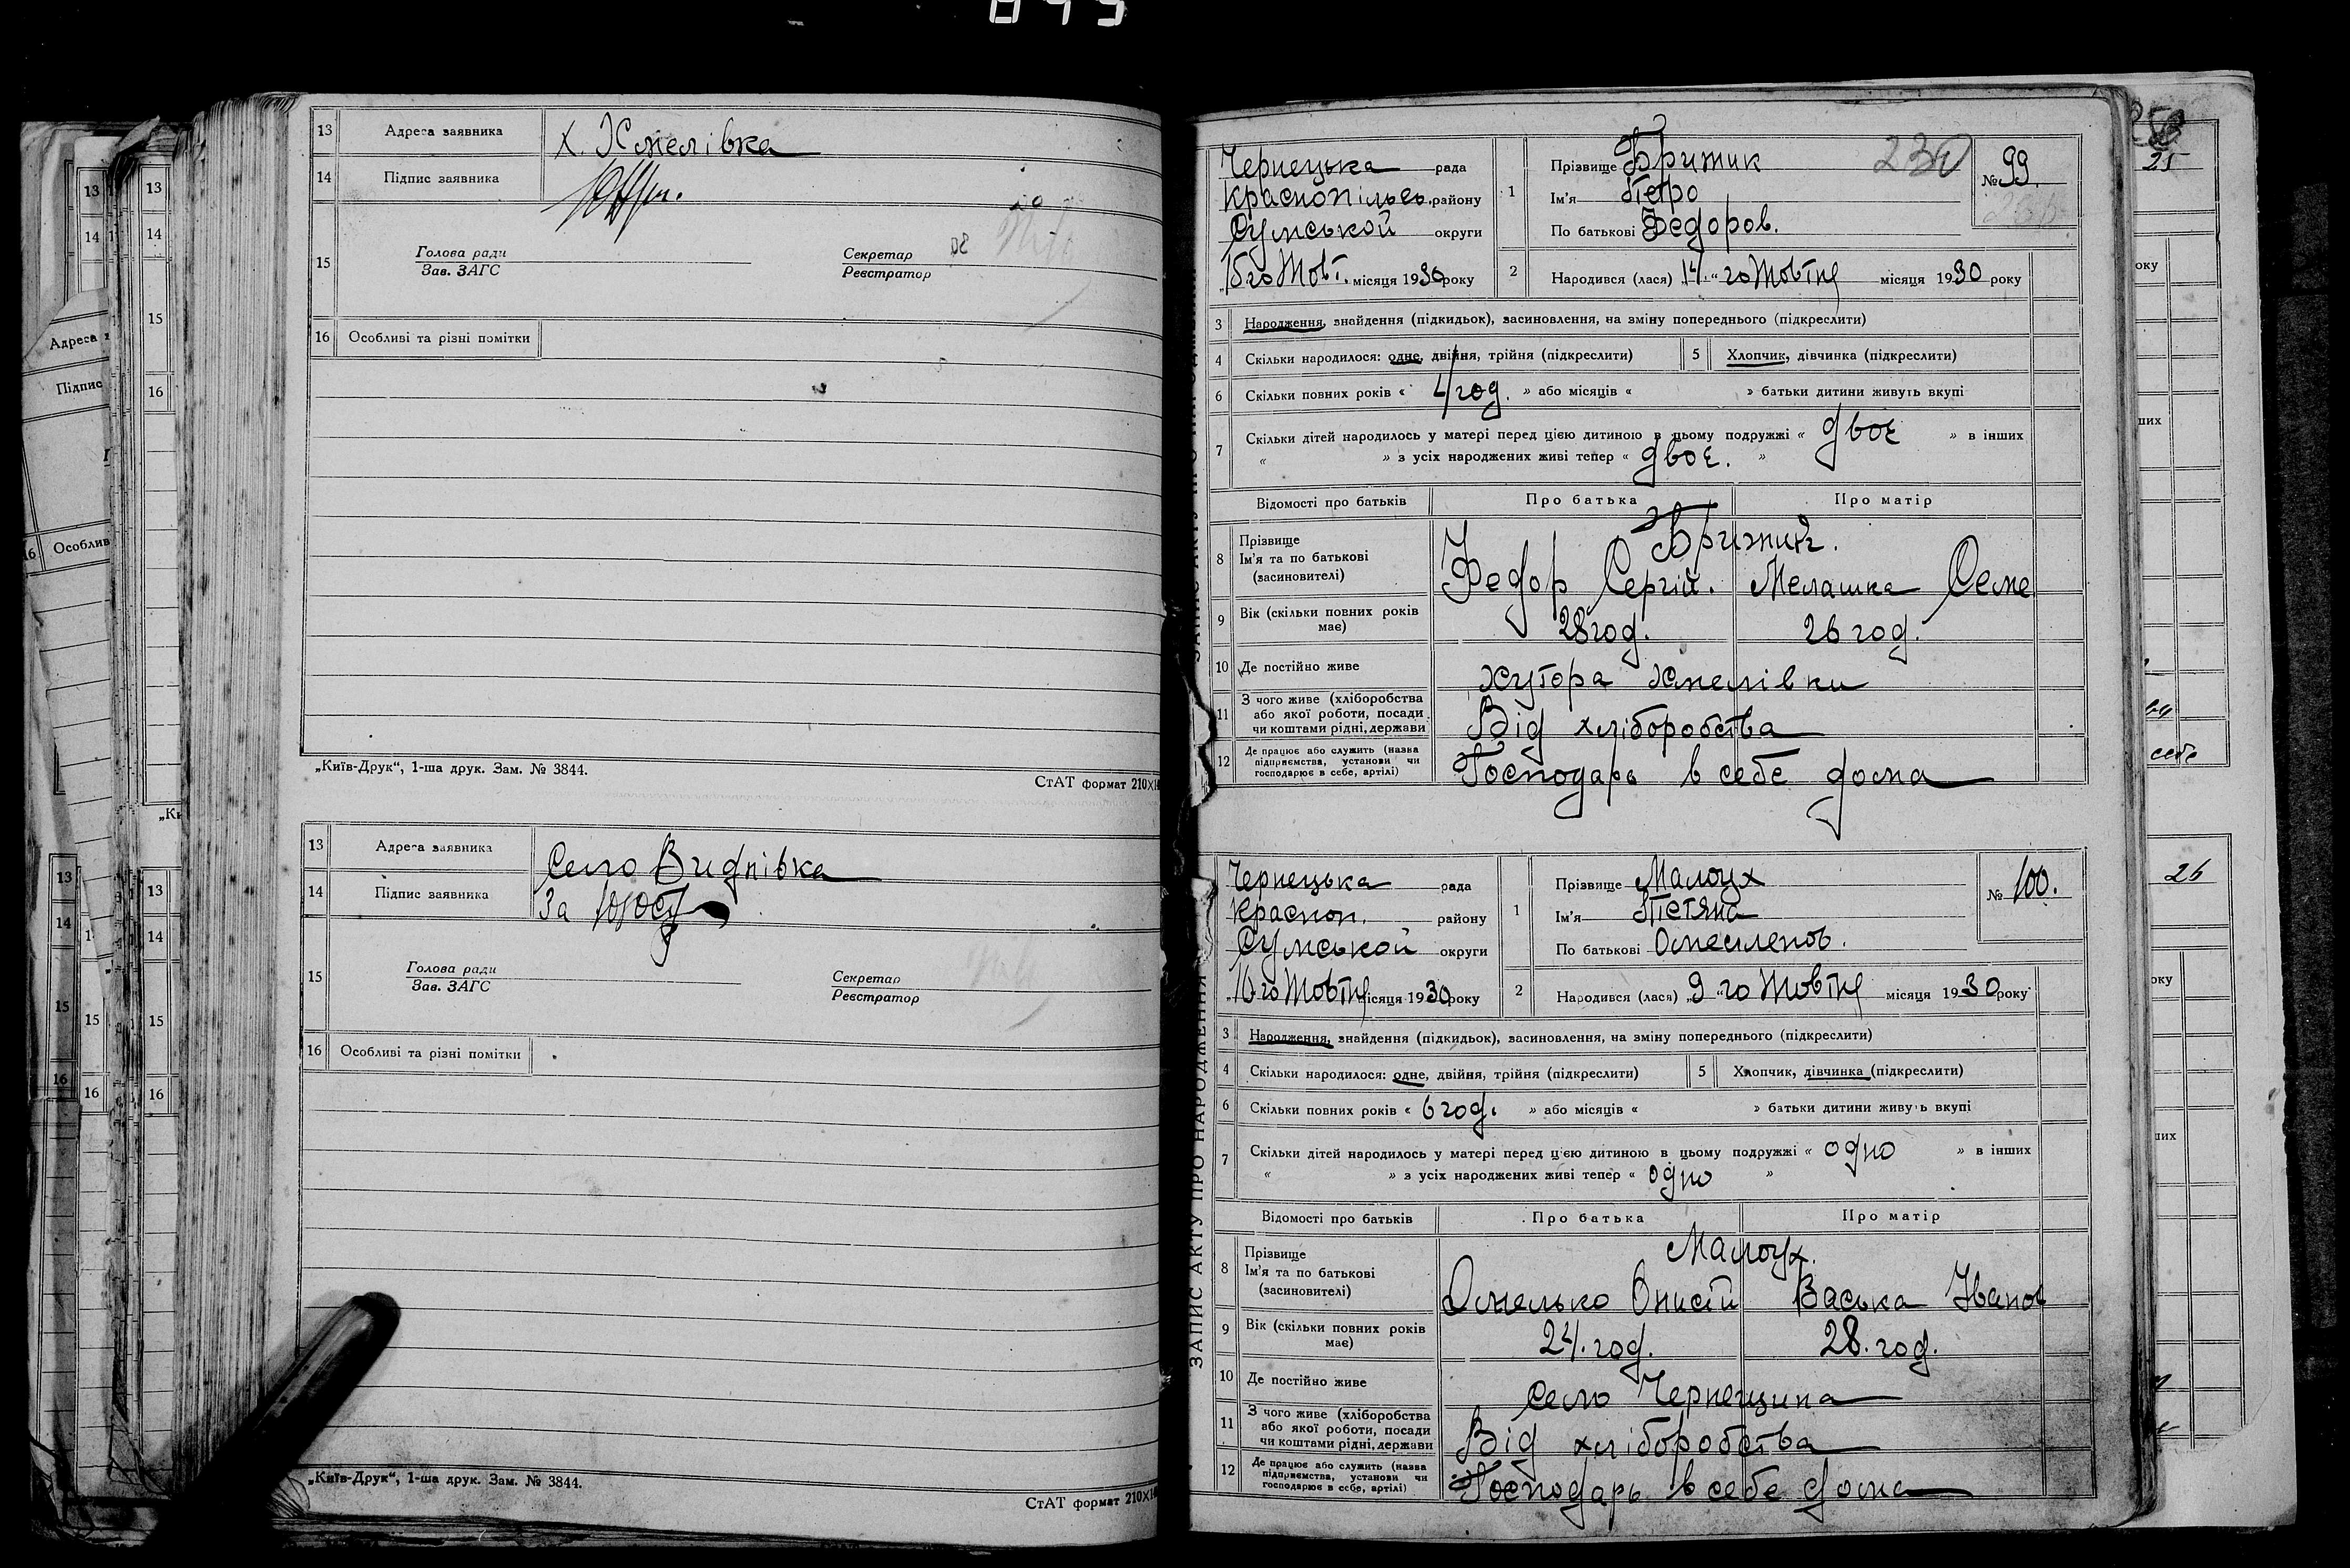 13 Адреса заявника х. Хмелівка
14 Підпис заявника
15 Голова ради Секретар
Зав. ЗАГС Реєстратор
16 Особливі та різні помітки
„Київ-Друк“, 1-ша друк. Зам. № 3844.
СтАТ формат 210×1
13 Адреса заявника Село Видnівка
14 Підпис заявника За
15 Голова ради Секретар
Зав. ЗАГС Реєстратор
16 Особливі та різні помітки
„Київ-Друк“, 1-ша друк. Зам. № 3844.
СтАТ формат 210×1
Чернецька рада
Краснопільсь. району
Сумськой округи
„15го Жовт. місяця 1930 року
1 Прізвище Брижик 230
Ім'я Петро
По батькові Федоров.
№ 99.
2 Народився (лася) „14“ го Жовтня місяця 1930 року
3 Народження, знайдення (підкидьок), засиновлення, на зміну попереднього (підкреслити)
4 Скільки народилося: одне, двійня, трійня (підкреслити) 5 Хлопчик, дівчинка (підкреслити)
6 Скільки повних років « 4 год. » або місяців « » батьки дитини живуть вкупі
7 Скільки дітей народилось у матері перед цією дитиною в цьому подружжі « двоє » в інших
« » з усіх народжених живі тепер « двоє. »
Відомості про батьків Про батька Про матір
8 Прізвище Брижик.
Ім'я та по батькові
(засиновителі) Федор Сергій. Мелашка Семе
9 Вік (скільки повних років має) 28 год. 26 год.
10 Де постійно живе хутора Хмелівки
11 З чого живе (хліборобства
або якої роботи, посади
чи коштами рідні, держави Від хліборобства
12 Де працює або служить (назва
підприємства, установи чи
господарює в себе, артілі) Господарь в себе дома
ЗАПИС АКТУ ПРО НАРОДЖЕННЯ
Чернецька рада
Красноп. району
Сумськой округи
„10го Жовтня місяця 1930 року
1 Прізвище Малоух
Ім'я Тетяна
По батькові Омеленов.
№ 100.
2 Народився (лася) „9“ го Жовтня місяця 1930 року
3 Народження, знайдення (підкидьок), засиновлення, на зміну попереднього (підкреслити)
4 Скільки народилося: одне, двійня, трійня (підкреслити) 5 Хлопчик, дівчинка (підкреслити)
6 Скільки повних років « 6 год. » або місяців « » батьки дитини живуть вкупі
7 Скільки дітей народилось у матері перед цією дитиною в цьому подружжі « одно » в інших
« » з усіх народжених живі тепер « одно »
Відомості про батьків Про батька Про матір
8 Прізвище Малоух.
Ім'я та по батькові
(засиновителі) Омелько Онисій Васька Іванов
9 Вік (скільки повних років має) 24. год. 28. год.
10 Де постійно живе село Чернещина
11 З чого живе (хліборобства
або якої роботи, посади
чи коштами рідні, держави Від хліборобства
12 Де працює або служить (назва
підприємства, установи чи
господарює в себе, артілі) Господарь в себе дома